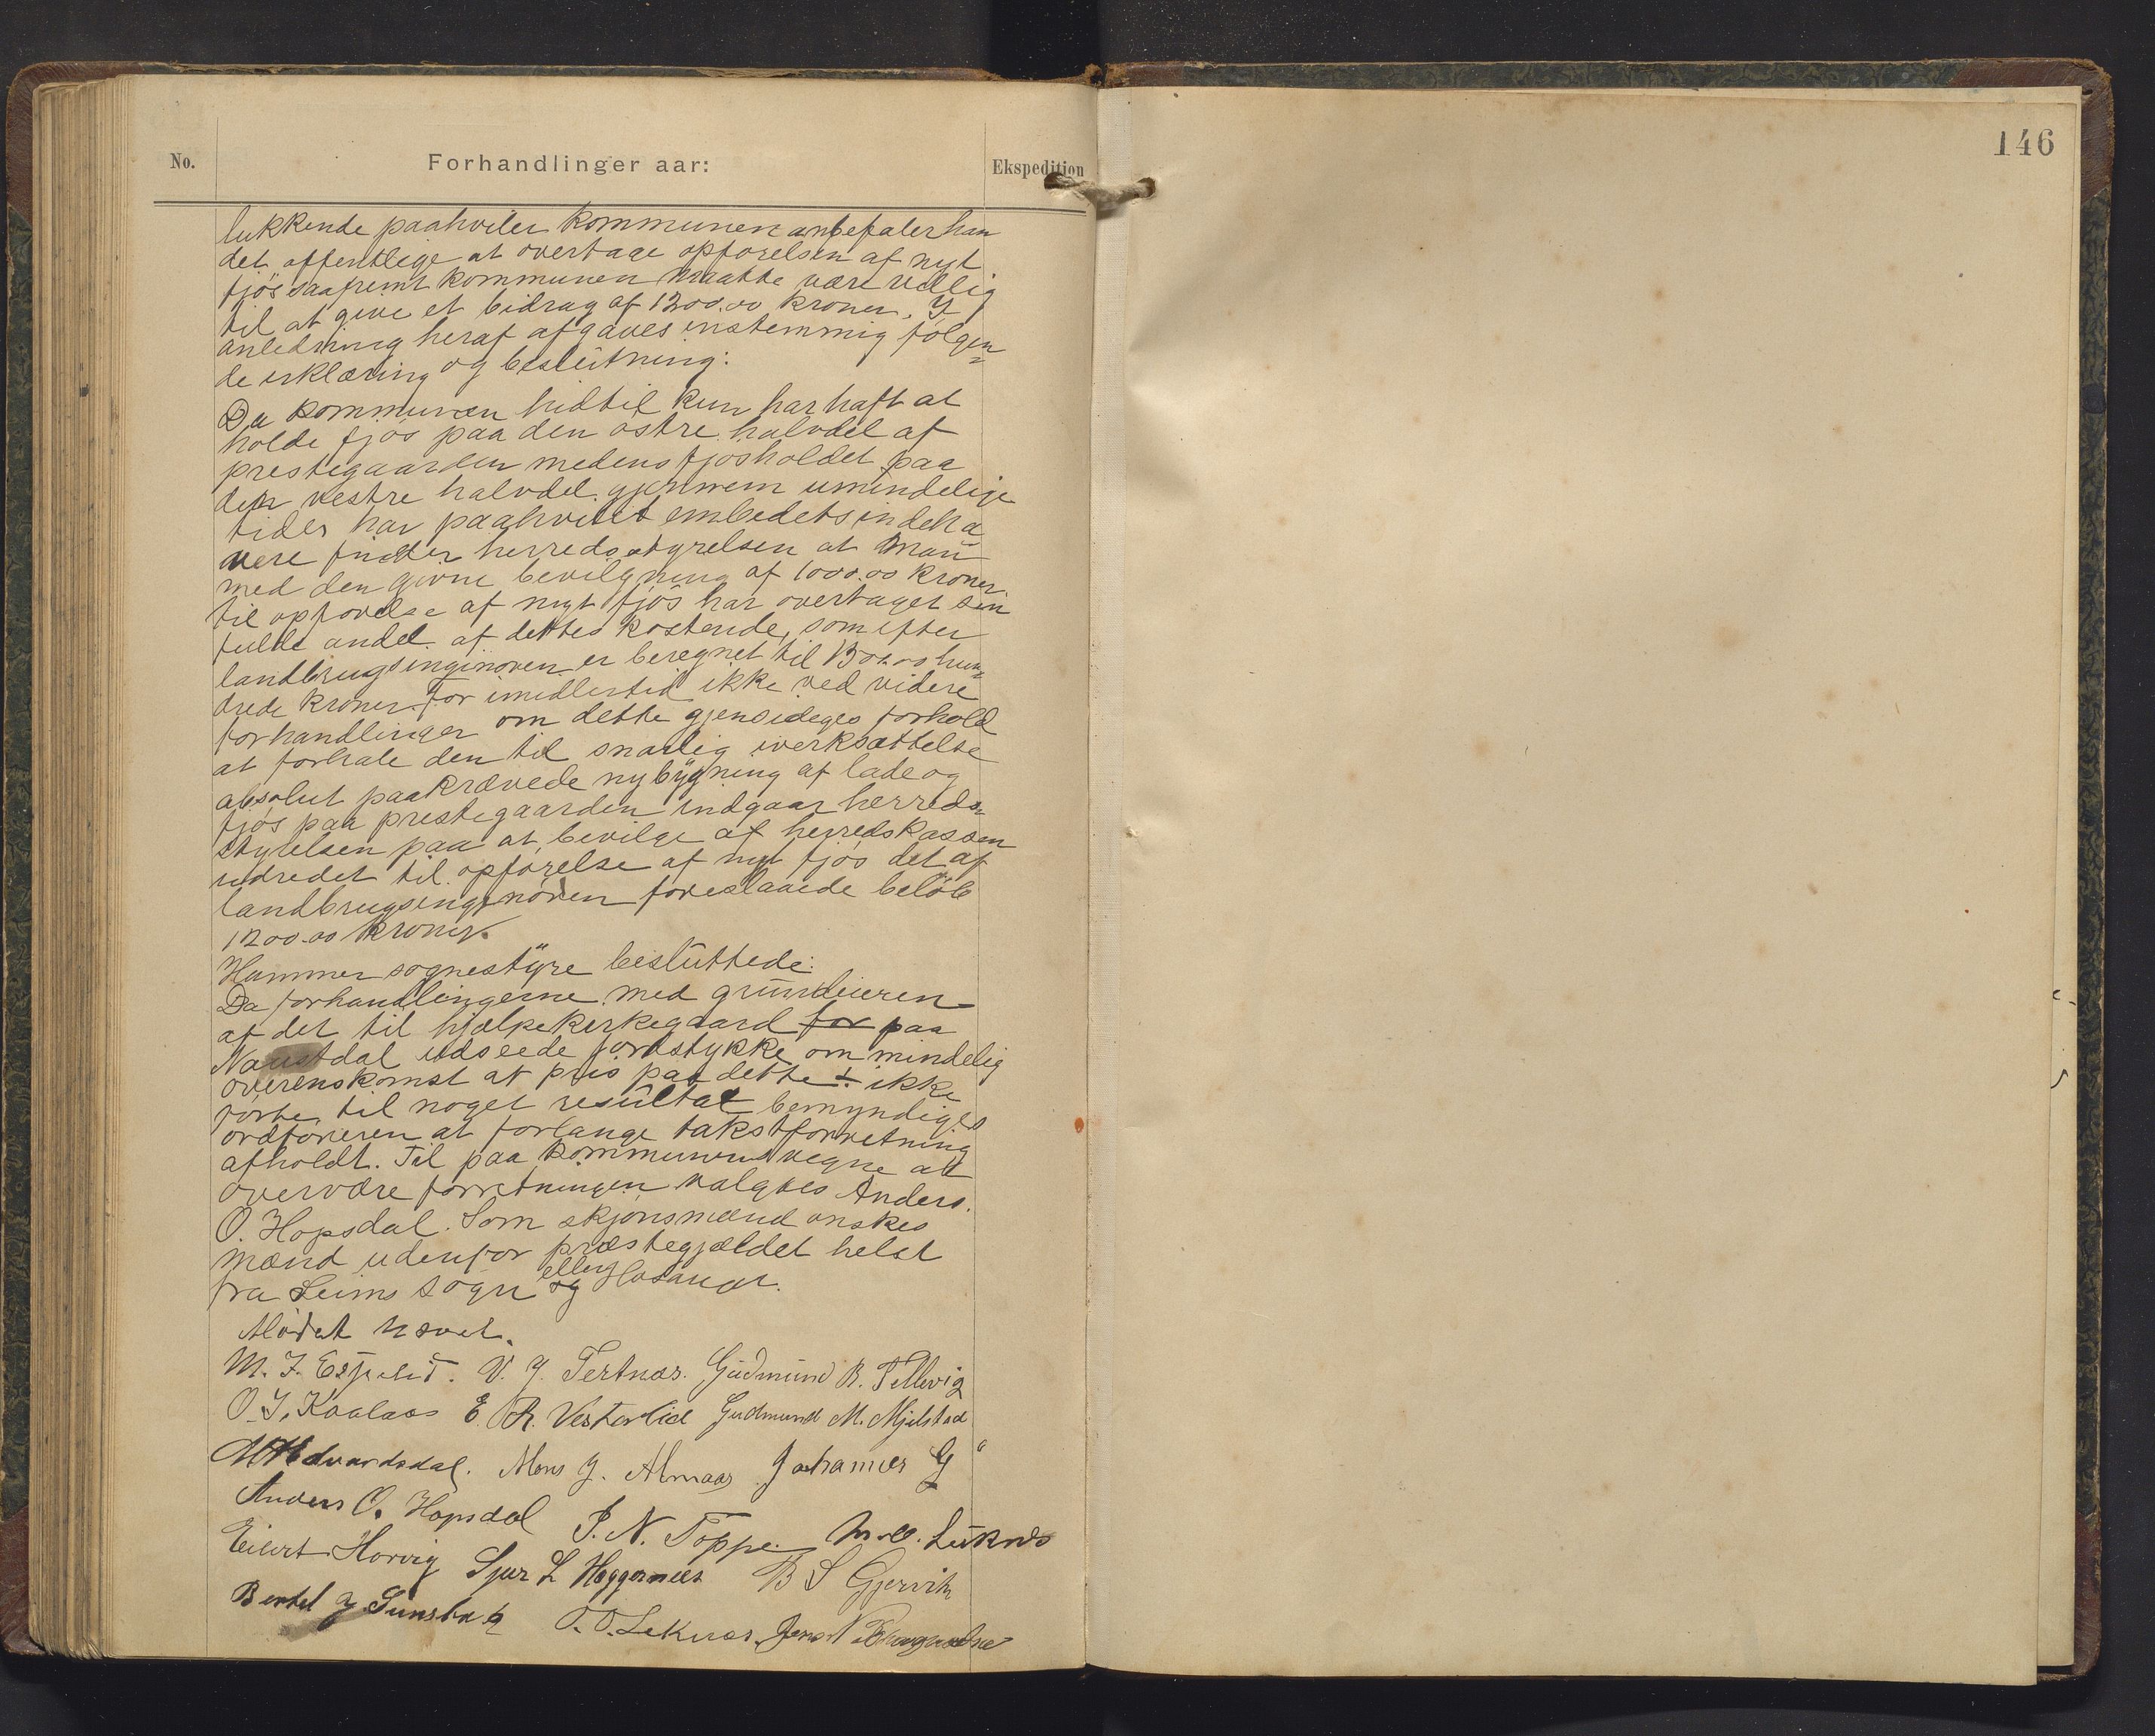 No.
Forhandlinger aar:
Ekspedition
146
lukkende paahviler kommunen anbefaler han
det offentlige at overtage opförelsen af nyt
fjös saafremt kommunen maatte være villig
til at give et bidrag af 1200.00 kroner. I
anledning heraf afgaves enstemmig følgen=
de erklæring og beslutning:
Da kommunen hidtil kun har haft at
holde fjös paa den östre halvdel af
prestegaarden medens fjösholdet paa
den vestre halvdel gjennem umindelige
tider har paahvilet embedets indeha
vere finder herredsstyrelsen at man
med den givne bevilgning af 1000.00 kroner
til opförelse af nyt fjös har overtaget sin
fulde andel af dettes kostende, som efter
landbrugsingeniören er beregnet til hun=
drede kroner. For imidlertid ikke ved videre
forhandlinger om dette gjensidiges forhold
at forhale den til snarlig iverksættelse
absolut paakrævede nybygning af lade og
fjös paa prestegaarden indgaar herreds=
styrelsen paa at bevilge af herredskassen
udredet til opförelse af nyt fjös det af
landbrugsingeniören foreslaaede belöb
1200.00 kroner.
Hammer sognestyre besluttede:
Da forhandlingerne med grundeieren
af det til hjælpekirkegaard for paa
Naustdal udseede jordstykke om mindelig
overenskomst at pris paa dette ikke
förte til noget resultat bemyndiges
ordföreren at forlange takstforretning
afholdt. Til paa kommunens vegne at
overvære forretningen valgtes Anders
O. Hopsdal. Som skjönsmænd önskes
mænd udenfor præstegjældet helst
fra Seims sogn og eller Hosanger.
Mödet hævet.
M. J. Espelid. V. J. Tertnæs. Gudmund B. Tellevig
O. J. Kaalaas E. A. Vesterlid Gudmund M. Mjelstad
Edvardsdal. Mons J. Almaas Johannes G
Anders O. Hopsdal J. N. Toppe M. O. Luknes
Eilert Horvig Sjur L Heggernæs B S Gjervik
Bertel J. O. O. Leknes. Jens N